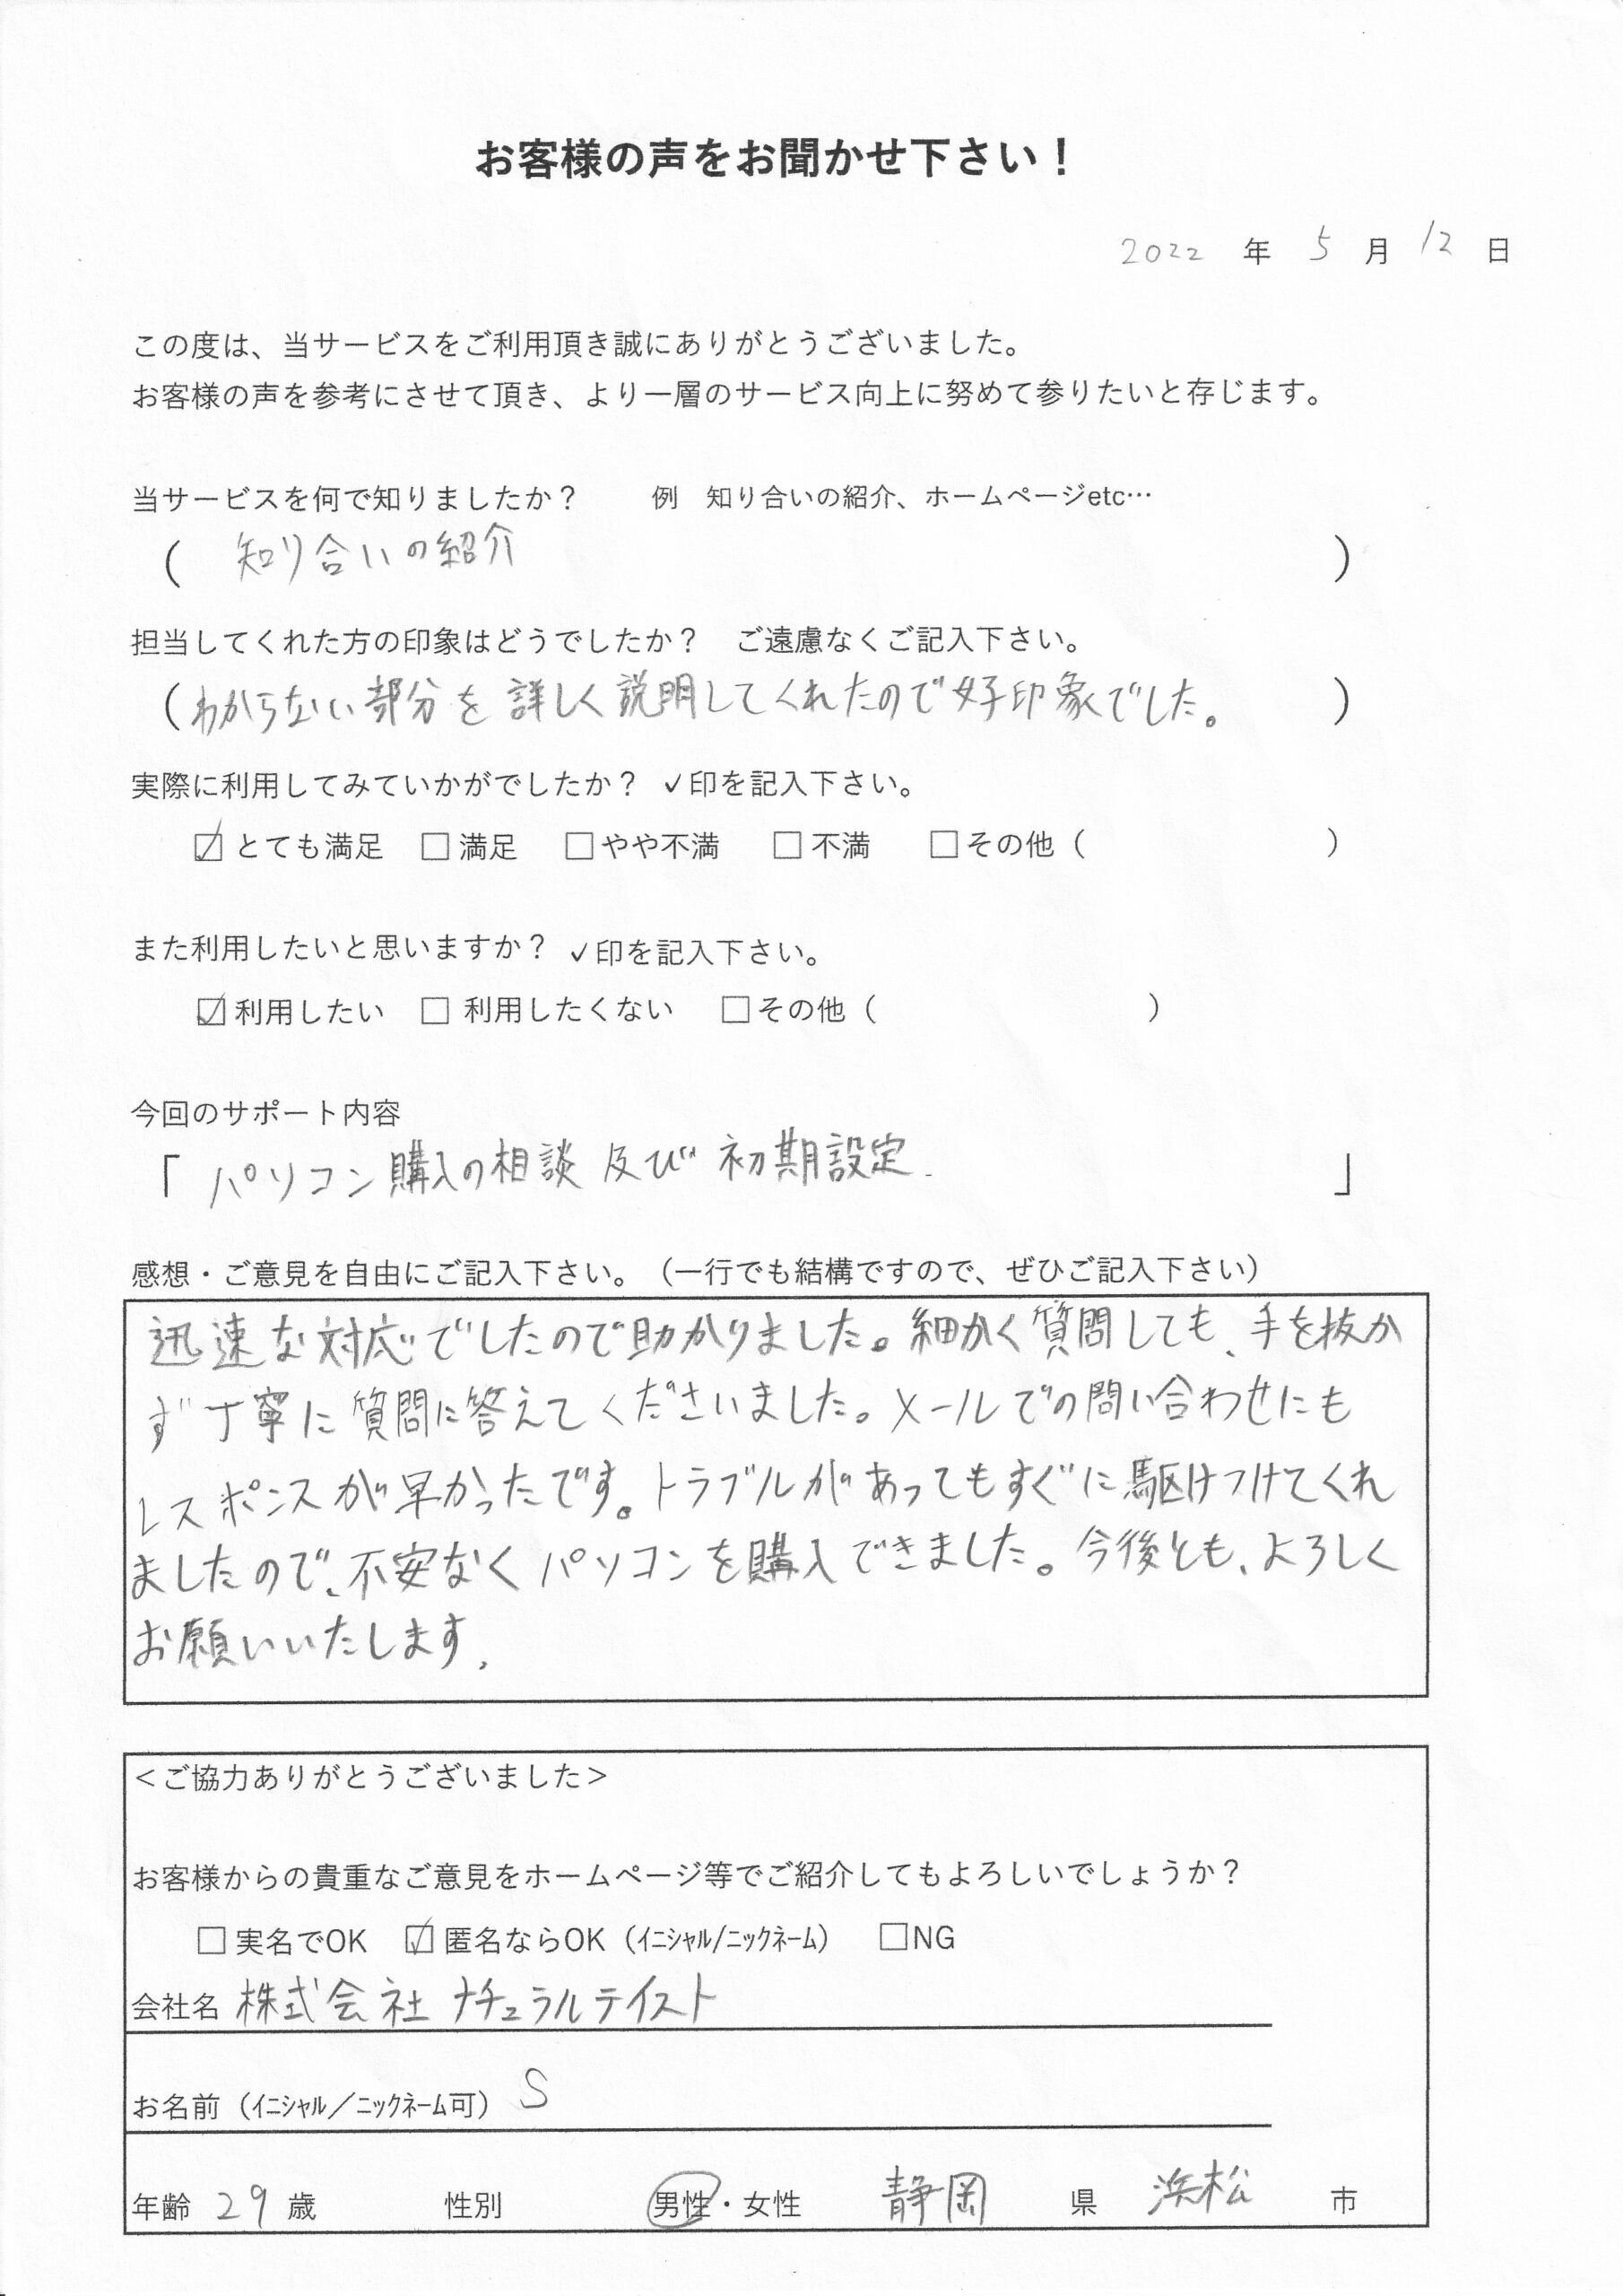 お客様の声をお聞かせ下さい！
2022 年 5 月 12 日
この度は、当サービスをご利用頂き誠にありがとうございました。
お客様の声を参考にさせて頂き、より一層のサービス向上に努めて参りたいと存じます。
当サービスを何で知りましたか？　例　知り合いの紹介、ホームページetc…
（ 知り合いの紹介 ）
担当してくれた方の印象はどうでしたか？　ご遠慮なくご記入下さい。
（わからない部分を詳しく説明してくれたので好印象でした。）
実際に利用してみていかがでしたか？ ✓印を記入下さい。
☑ とても満足 □ 満足 □ やや不満 □ 不満 □ その他（　）
また利用したいと思いますか？ ✓印を記入下さい。
☑ 利用したい □ 利用したくない □ その他（　）
今回のサポート内容
「 パソコン購入の相談 及び 初期設定. 」
感想・ご意見を自由にご記入下さい。（一行でも結構ですので、ぜひご記入下さい）
迅速な対応でしたので助かりました。細かく質問しても、手を抜か
ず丁寧に質問に答えてくださいました。メールでの問い合わせにも
レスポンスが早かったです。トラブルがあってもすぐに駆けつけてくれ
ましたので、不安なくパソコンを購入できました。今後とも、よろしく
お願いいたします。
＜ご協力ありがとうございました＞
お客様からの貴重なご意見をホームページ等でご紹介してもよろしいでしょうか？
□ 実名でOK ☑ 匿名ならOK（ｲﾆｼｬﾙ/ﾆｯｸﾈｰﾑ） □NG
会社名 株式会社 ナチュラルテイスト
お名前（ｲﾆｼｬﾙ／ﾆｯｸﾈｰﾑ可） S
年齢 29 歳 性別 男性・女性 静岡 県 浜松 市